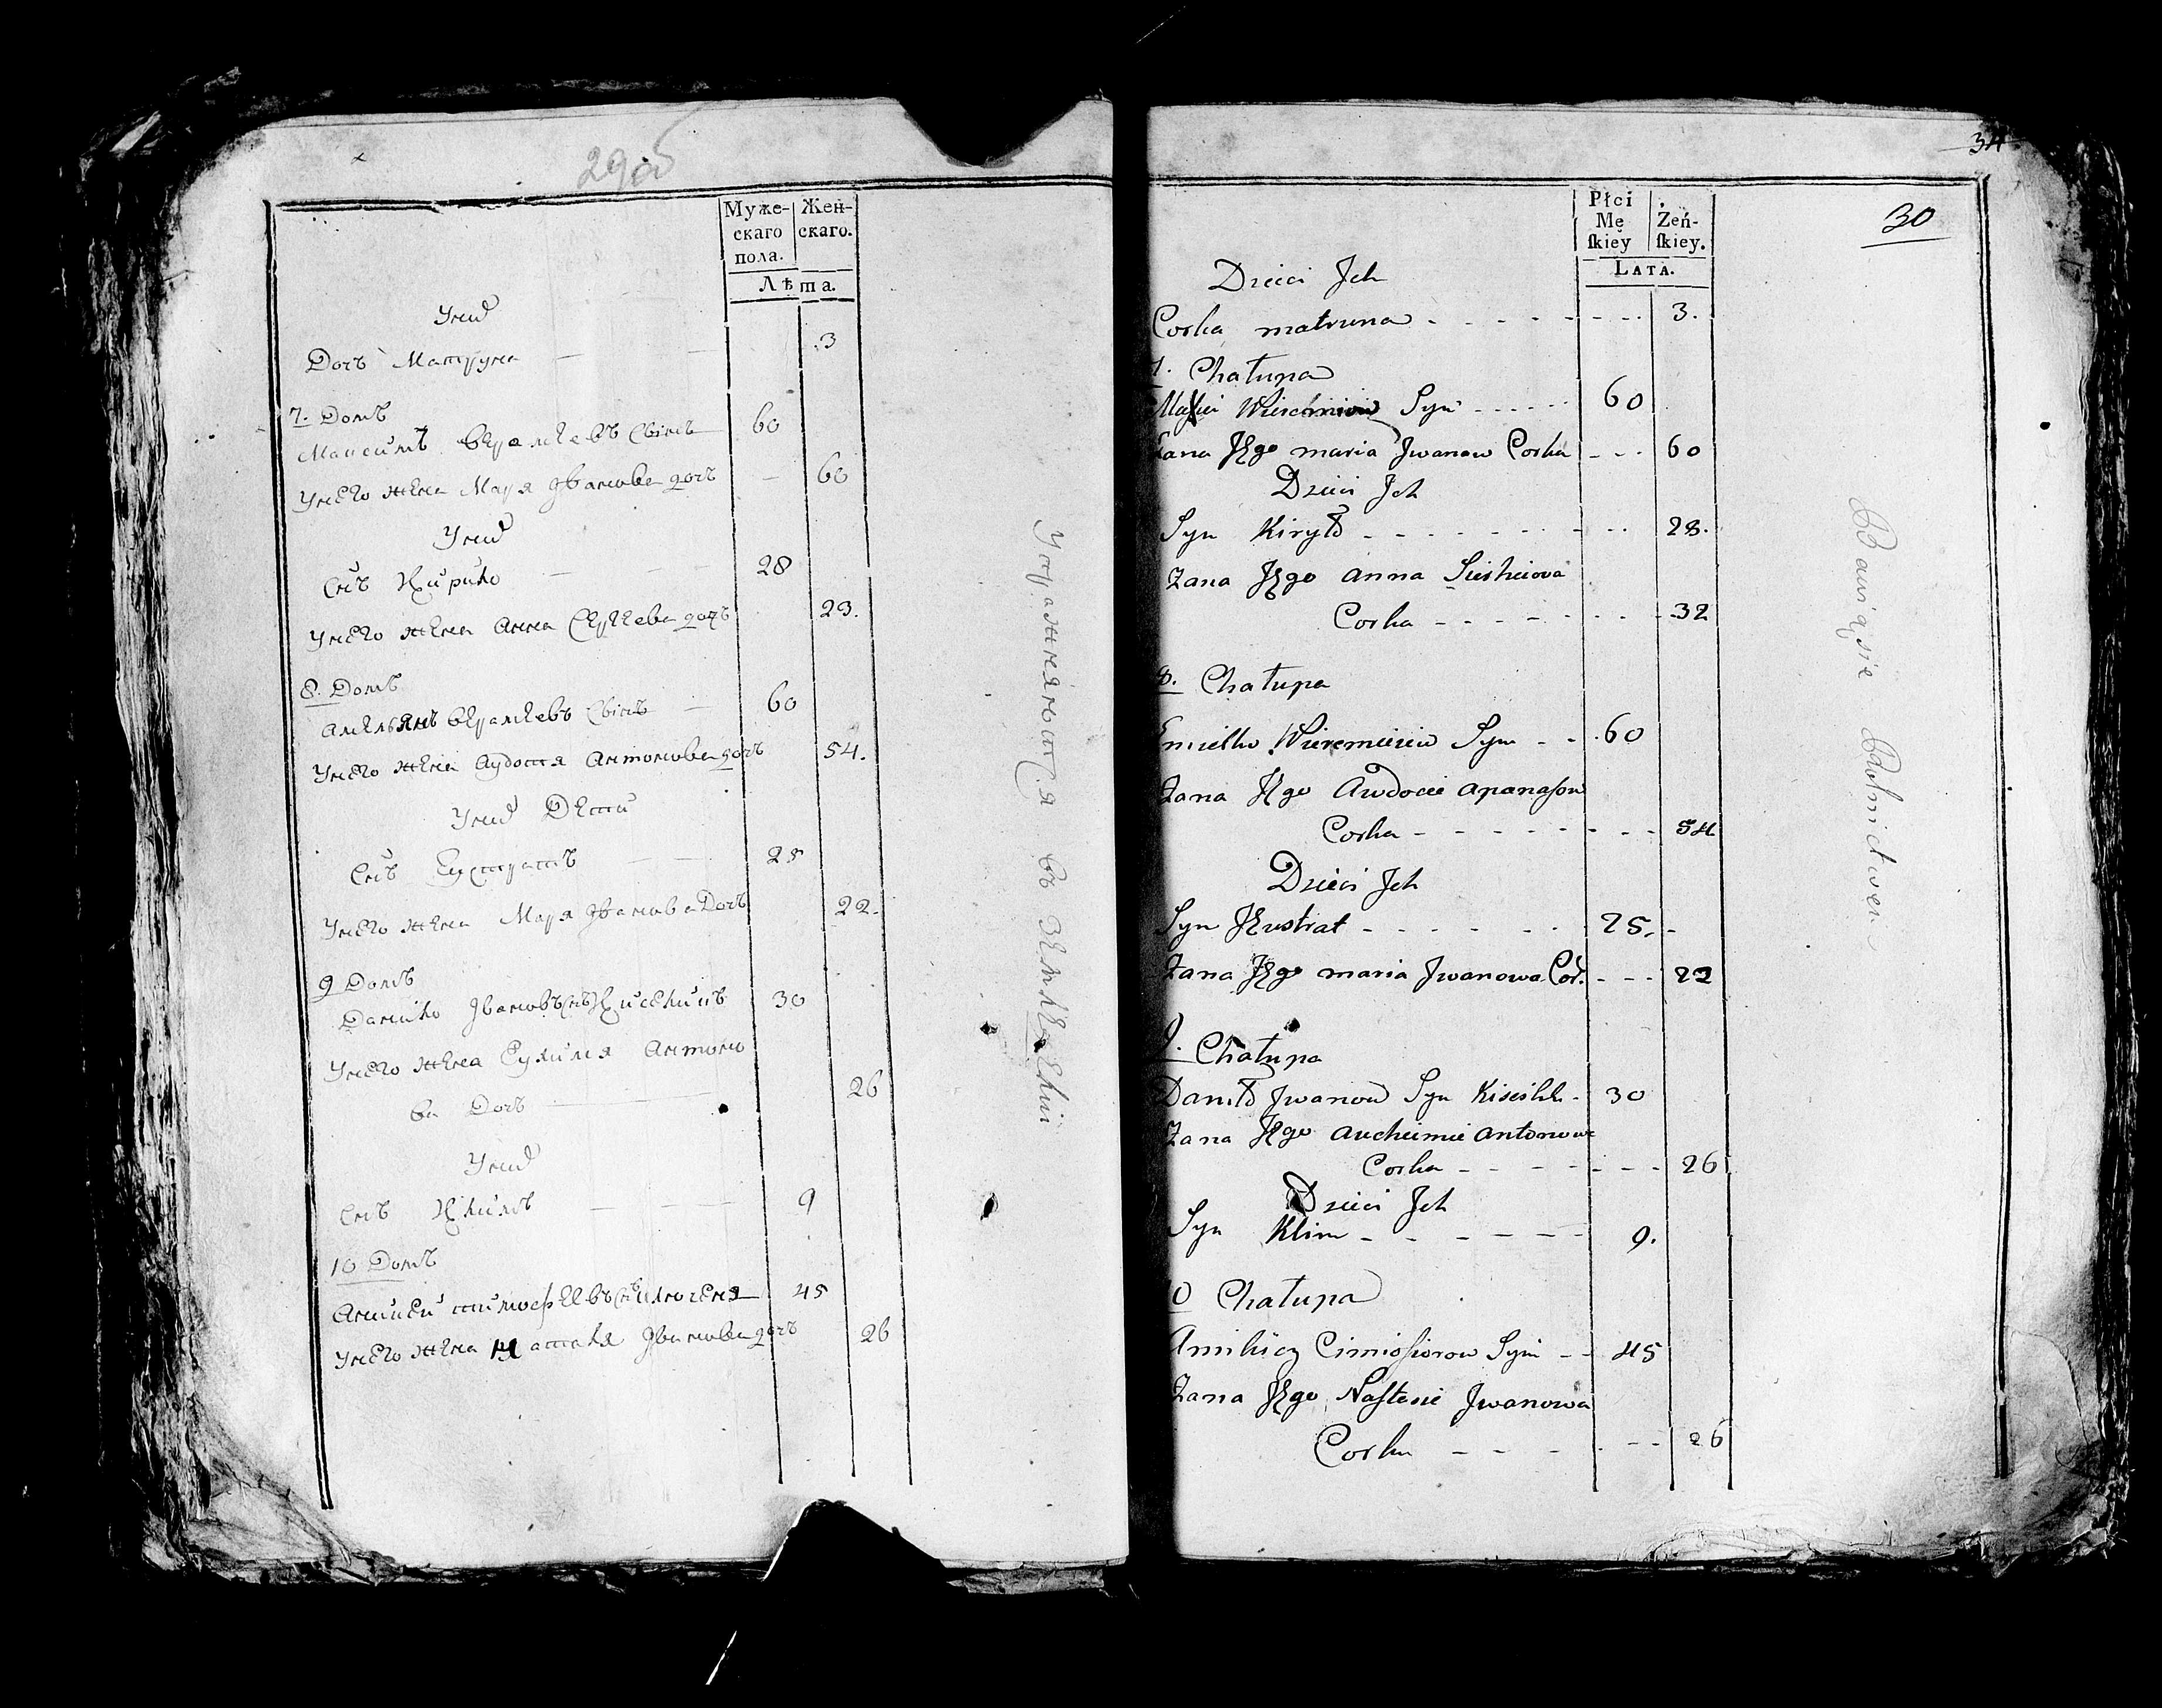 29об
Муже-
скаго
пола.
Жен-
скаго.
Лѣта.
У них
Дочъ Матруна 3
7. Домъ
Максимъ Ерамѣевъ Сынъ 60
У него жена Маря Іванова дочъ 60
У них
Снъ Кирило 28
У него жена Анна Сергѣева дочъ 23.
8. Домъ
Амельянъ Ерамѣевъ Сынъ 60
У него жена Аудотя Антонова дочъ 54.
У них Дети
Снъ Еустратъ 25
У него жена Маря Іванова Дочъ 22.
9 Домъ
Данило Івановъ Снъ Киселикъ 30
У него жена Еухимя Антоно
ва Дочъ 26
У них
Снъ Климъ 9
10 Домъ
Аникей тимофеевъ Снъ 45
У него жена Настазя Іванова дочъ 26
Упражняются въ Земледелии
34
30
Płci
Mę
ſkiey
Żeń-
ſkiey.
Lata.
Dzieci Jch
Corka matruna 3.
7. Chałupa
Wieremieiew Syn 60
Żana Jego maria Jwanow Corka 60
Dzieci Jch
Syn Kiryło 28.
Żana Jego Anna Sierheiowa
Corka 32
8. Chałupa
Emielko Wieremieiew Syn 60
Żana Jego Awdocie Apanaſow
Corka 54
Dzieci Jch
Syn Jeustrat 25.
Żana Jego maria Jwanowa Cor. 22
9. Chałupa
Daniło Jwanow Syn Kisielik 30
Żana Jego Auchimie Antonowa
Corka 26
Dzieci Jch
Syn Klim 9.
10 Chałupa
Anikiey Cimofiorow Syn 45
Żana Jego Naſtesie Jwanowa
Corka 26
Bawią się Rolnictwem